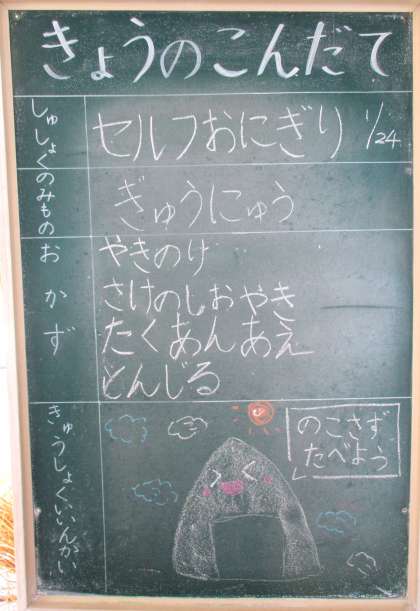 きょうのこんだて
しゅしょく
セルフおにぎり 1/24
のみもの
ぎゅうにゅう
おかず
やきのり
さけのしおやき
たくあんあえ
とんじる
きゅうしょくいいんかい
のこさず
たべよう